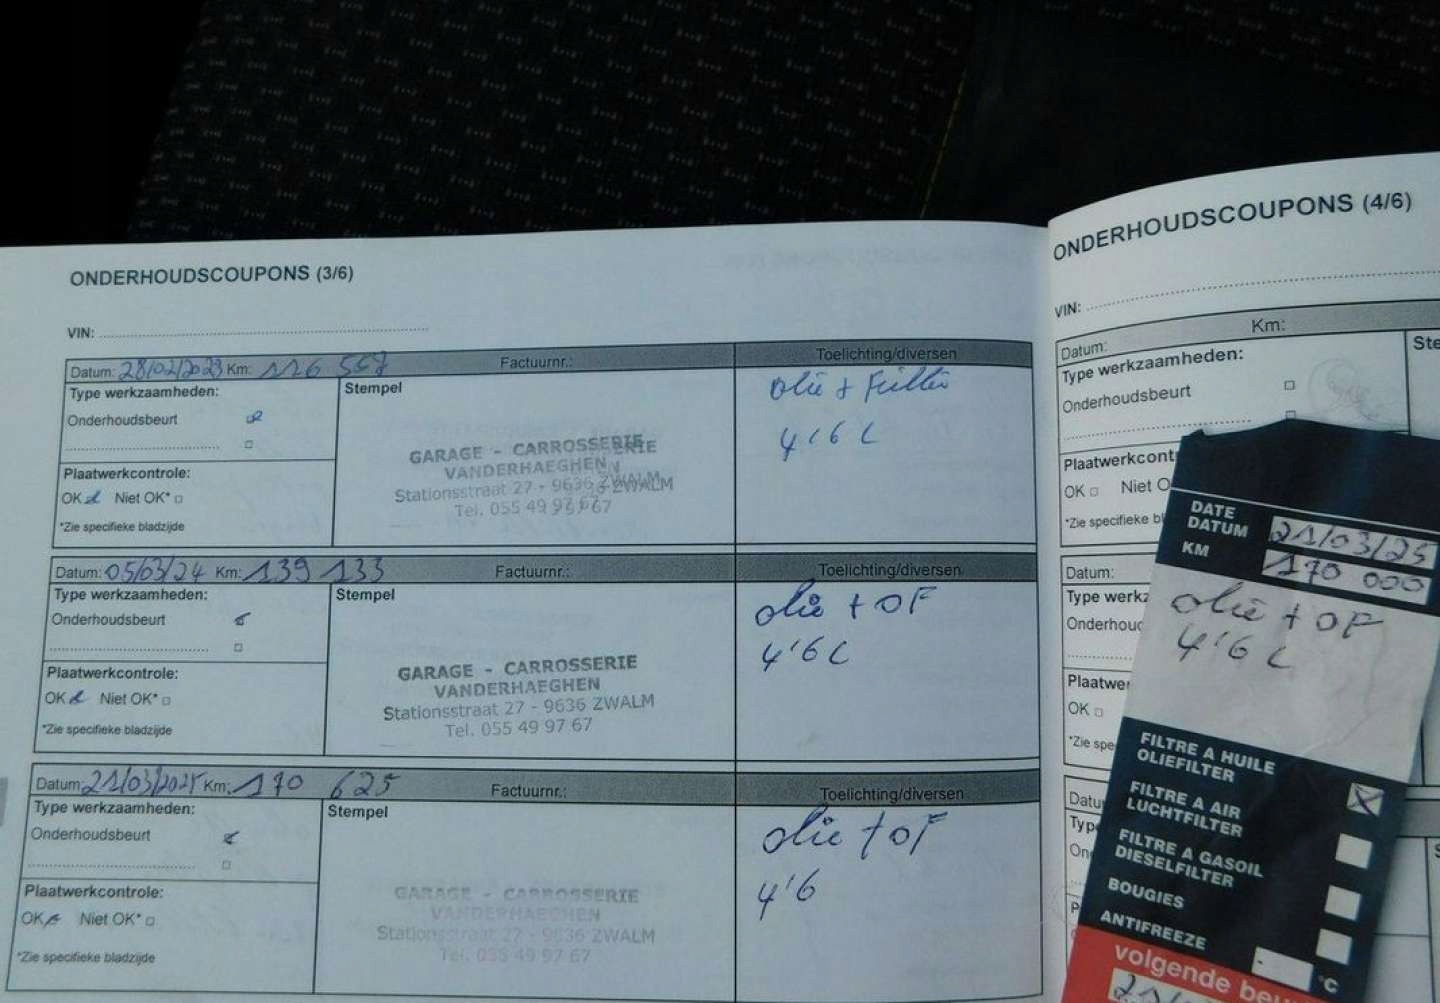 ONDERHOUDSCOUPONS (3/6)
VIN:
Datum: 28/02/2023 Km: 126 557 Factuurnr.: Toelichting/diversen
Type werkzaamheden:
Onderhoudsbeurt
Plaatwerkcontrole:
OK Niet OK*
*Zie specifieke bladzijde
Stempel
GARAGE - CARROSSERIE
VANDERHAEGHEN
Stationsstraat 27 - 9636 ZWALM
Tel. 055 49 97 67
olie + Filter
4'6 L
Datum: 05/03/24 Km: 139 133 Factuurnr.: Toelichting/diversen
Type werkzaamheden:
Onderhoudsbeurt
Plaatwerkcontrole:
OK Niet OK*
*Zie specifieke bladzijde
Stempel
GARAGE - CARROSSERIE
VANDERHAEGHEN
Stationsstraat 27 - 9636 ZWALM
Tel. 055 49 97 67
olie + OF
4'6 L
Datum: 21/03/2025 Km: 170 625 Factuurnr.: Toelichting/diversen
Type werkzaamheden:
Onderhoudsbeurt
Plaatwerkcontrole:
OK Niet OK*
*Zie specifieke bladzijde
Stempel
GARAGE - CARROSSERIE
VANDERHAEGHEN
Stationsstraat 27 - 9636 ZWALM
Tel. 055 49 97 67
olie + OF
4'6
ONDERHOUDSCOUPONS (4/6)
VIN:
Km:
Datum:
Ste
Type werkzaamheden:
Onderhoudsbeurt
Plaatwerkcont
OK Niet O
*Zie specifieke bl
Datum:
Type werkz
Onderhou
Plaatwe
OK
*Zie spe
Datu
Typ
On
P
DATE
DATUM 21/03/25
KM 170 000
olie + OF
4'6 L
FILTRE A HUILE
OLIEFILTER
FILTRE A AIR
LUCHTFILTER
FILTRE A GASOIL
DIESELFILTER
BOUGIES
ANTIFREEZE
°C
volgende beu